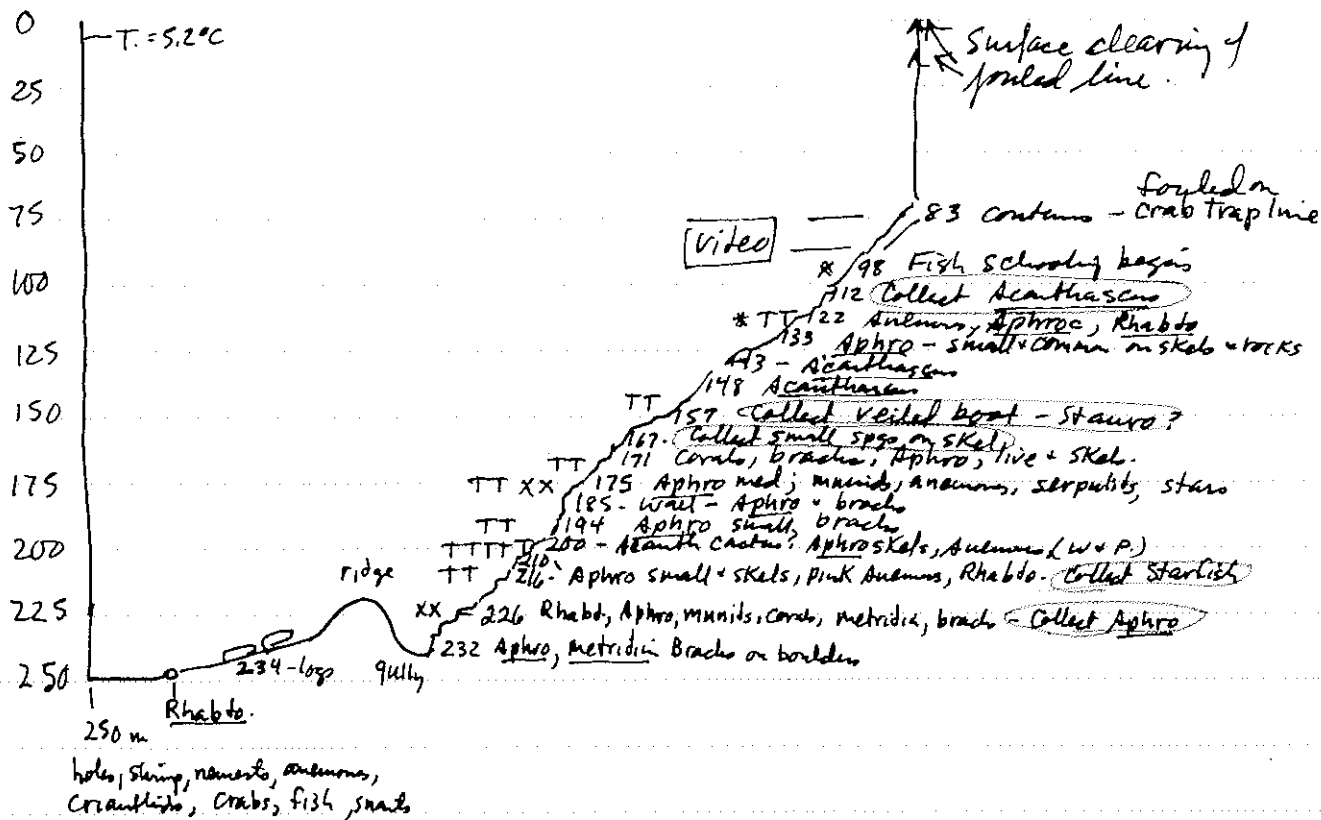 0
T. = 5.2°C
Surface clearing of
fouled line.
25
50
fouled on
75
83 contours - Crab trap line
video
* 98 Fish schooling begins
100
112 Collect Acanthascus
* TT 122 Anemones, Aphroc, Rhabdo
133 Aphro - small + common on skels + rocks
125
143 - Acanthascus
148 Acanthascus
150
TT 157 Collect veiled boot - Stauro?
167. Collect small spgs on skel.
TT 171 Corals, brachs, Aphro, live + skels.
175
TT XX 175 Aphro med; munids, anemones, serpulids, stars
185 - wall - Aphro + brachs
TT 194 Aphro small, brachs
200
TTTT T 200 - Acanth cactus? Aphro skels, Anemones (W + P.)
210
ridge TT 216 - Aphro small + skels, Pink Anemones, Rhabdo. Collect Starfish
225
XX 226 Rhabd, Aphro, munids, corals, metridia, brachs - Collect Aphro
232 Aphro, metridia Brachs on boulders
234 - logs gully
250
Rhabdo.
250 m
holes, shrimp, anemones,
Cerianthids, Crabs, fish